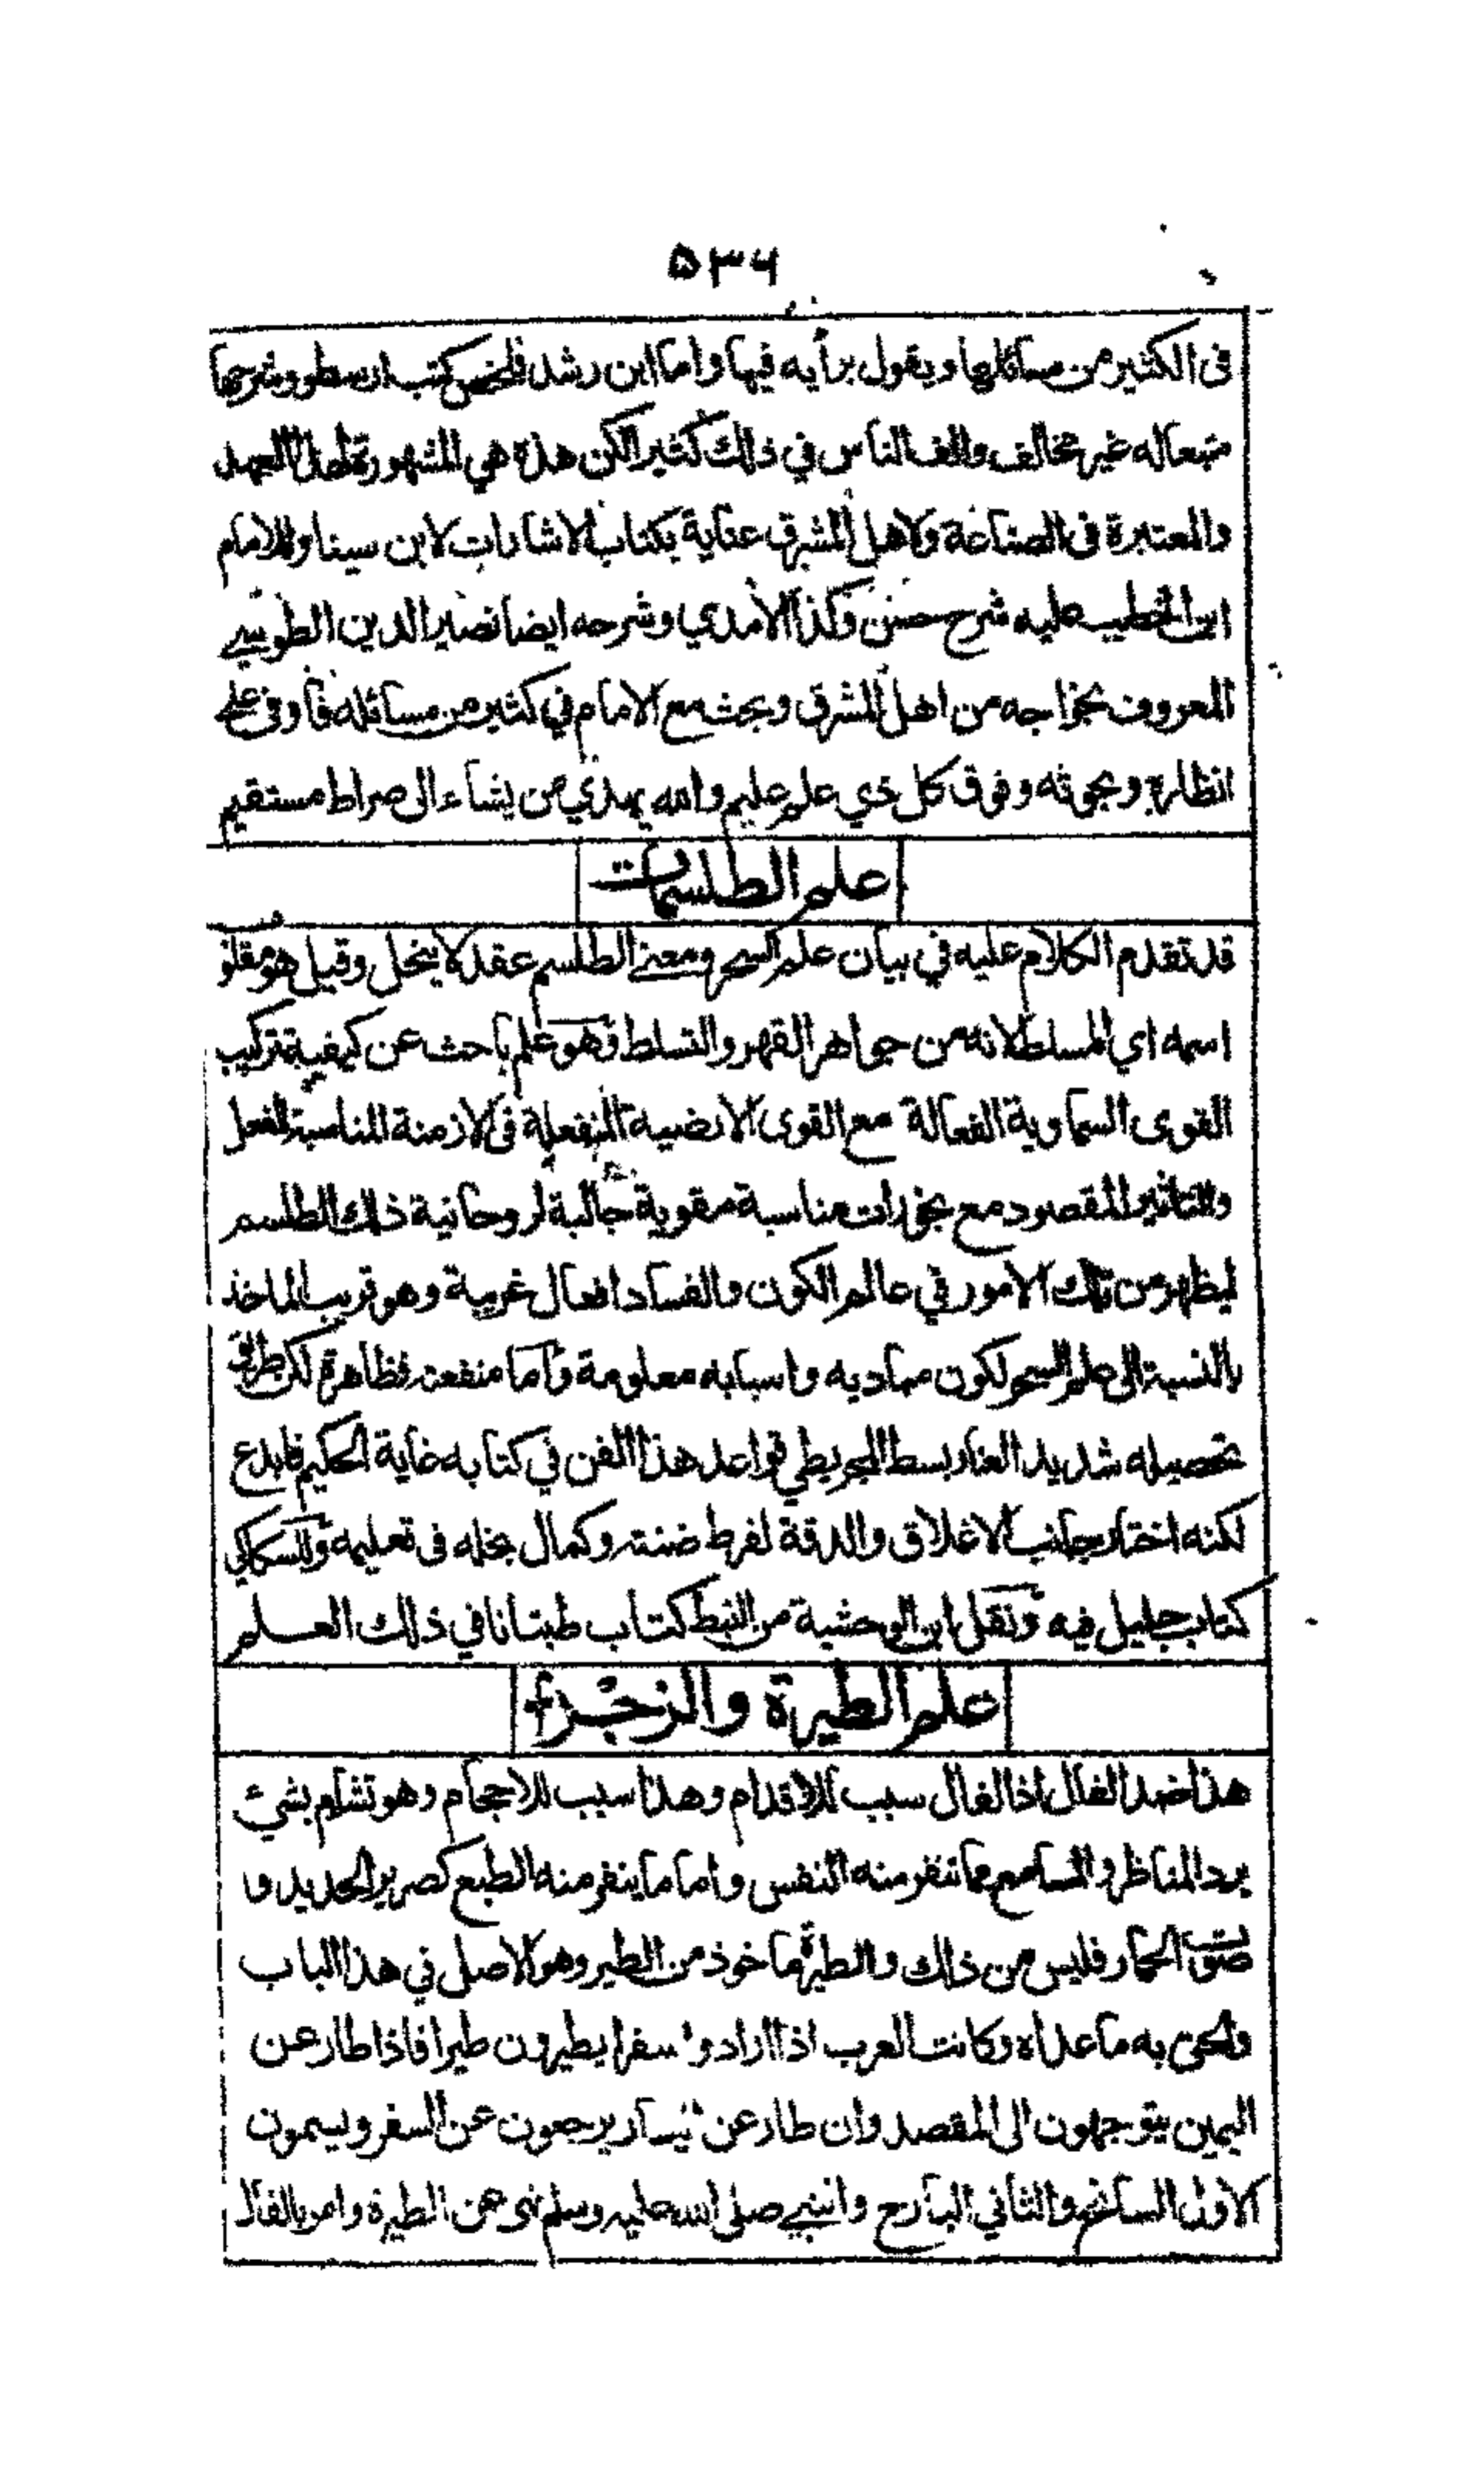 ٥٣٦
فى الكثير من مسائلها ويقول برأيه فيها واما ابن رشد فلخص كتب ارسطو وشرحها
متبعا له غير مخالف والف الناس في ذلك كثيرا لكن هذه هي المشهورة لهذا العهد
والمعتبرة فى الصناعة ولاهل المشرق عناية بكتاب الاشارات لابن سينا وللامام
ابن الخطيب عليه شرح حسن وكذا الآمدي وشرحه ايضا نصير الدين الطوسي
المعروف بخواجه من اهل المشرق وبحث مع الامام في كثير من مسائله فأوفى على
انظاره وبحوثه وفوق كل ذي علم عليم والله يهدي من يشاء الى صراط مستقيم
علم الطلسمات
قد تقدم الكلام عليه في بيان علم السحر ومعنى الطلسم عقد لا ينحل وقيل هو مقلو
اسمه اي المسلط لانه من جواهر القهر والتسلط فهو علم باحث عن كيفية تركيب
القوى السماوية الفعالة مع القوى الارضية المنفعلة فى الازمنة المناسبة للفعل
والتاثير المقصود مع بخورات مناسبة مقوية جالبة لروحانية ذلك الطلسم
ليظهر من تلك الامور في عالم الكون والفساد افعال غريبة وهو قريب الماخذ
بالنسبة الى علم السحر لكون مباديه واسبابه معلومة واما منفعته فظاهرة لكن طرق
تحصيله شديد العنا وبسط المجريطي قواعد هذا الفن في كتابه غاية الحكيم فابدع
لكنه اختار جانب الاغلاق والدقة لفرط ضنته وكمال بخله فى تعليمه وللسكاكي
كتاب جليل فيه ونقل ابن الوحشية من النبط كتاب طبتانا في ذلك العلم
علم الطيرة والزجر
هذا ضد الفال اذ الفال سبب للاقدام وهذا سبب للاحجام وهو تشام بشئ
يرد المناظر والمسامع مما تنفر منه النفس واما ما ينفر منه الطبع كصرير الحديد و
صوت الحمار فليس من ذلك والطيرة ماخوذ من الطير وهو الاصل في هذا الباب
والحق به ما عداه وكانت العرب اذا ارادوا سفرا يطيرون طيرا فاذا طار عن
اليمين يتوجهون الى المقصد وان طار عن يسار يرجعون عن السفر ويسمون
الاول السانح والثاني البارح والنبي صلى الله عليه وسلم نهى عن الطيرة وامر بالفال